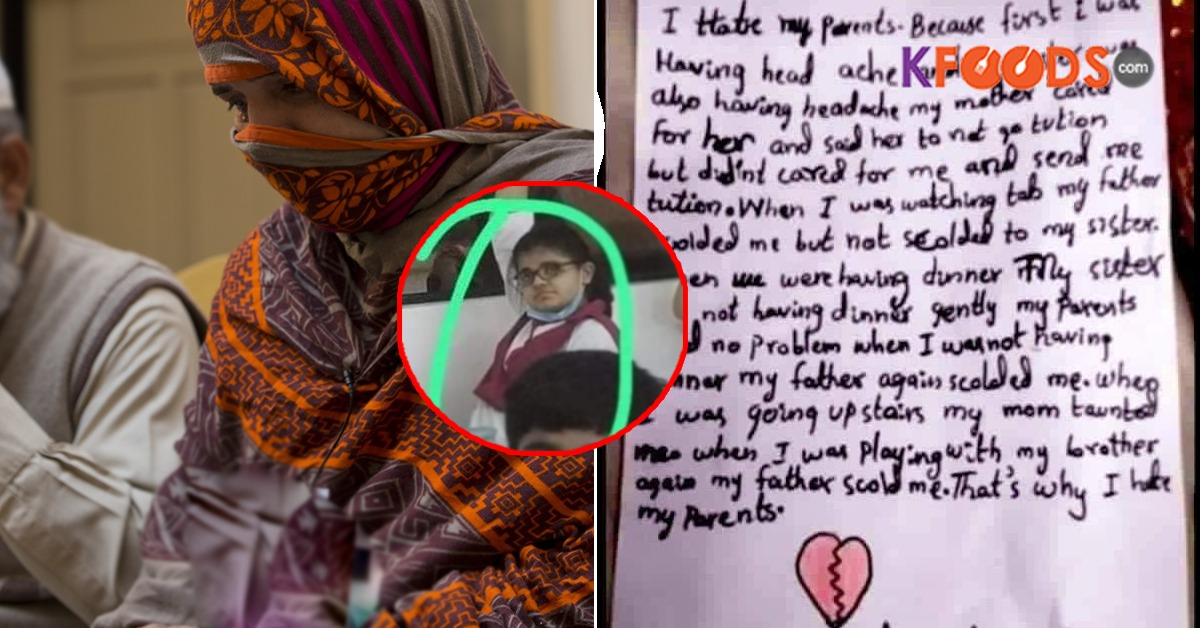 I Hate my Parents. Because first i was
Having head ache
KFOODS.com
also having headache my mother cared
for her and said her to not go tution
but didn't cared for me and send me
tution. When I was watching tab my father
scolded me but not scolded to my sister.
en we were having dinner My sister
not having dinner gently my Parents
no problem when I was not having
my father again scolded me. when
I was going upstairs my mom taunted
me when I was Playing with my brother
again my father scold me. That's why I hate
my Parents.